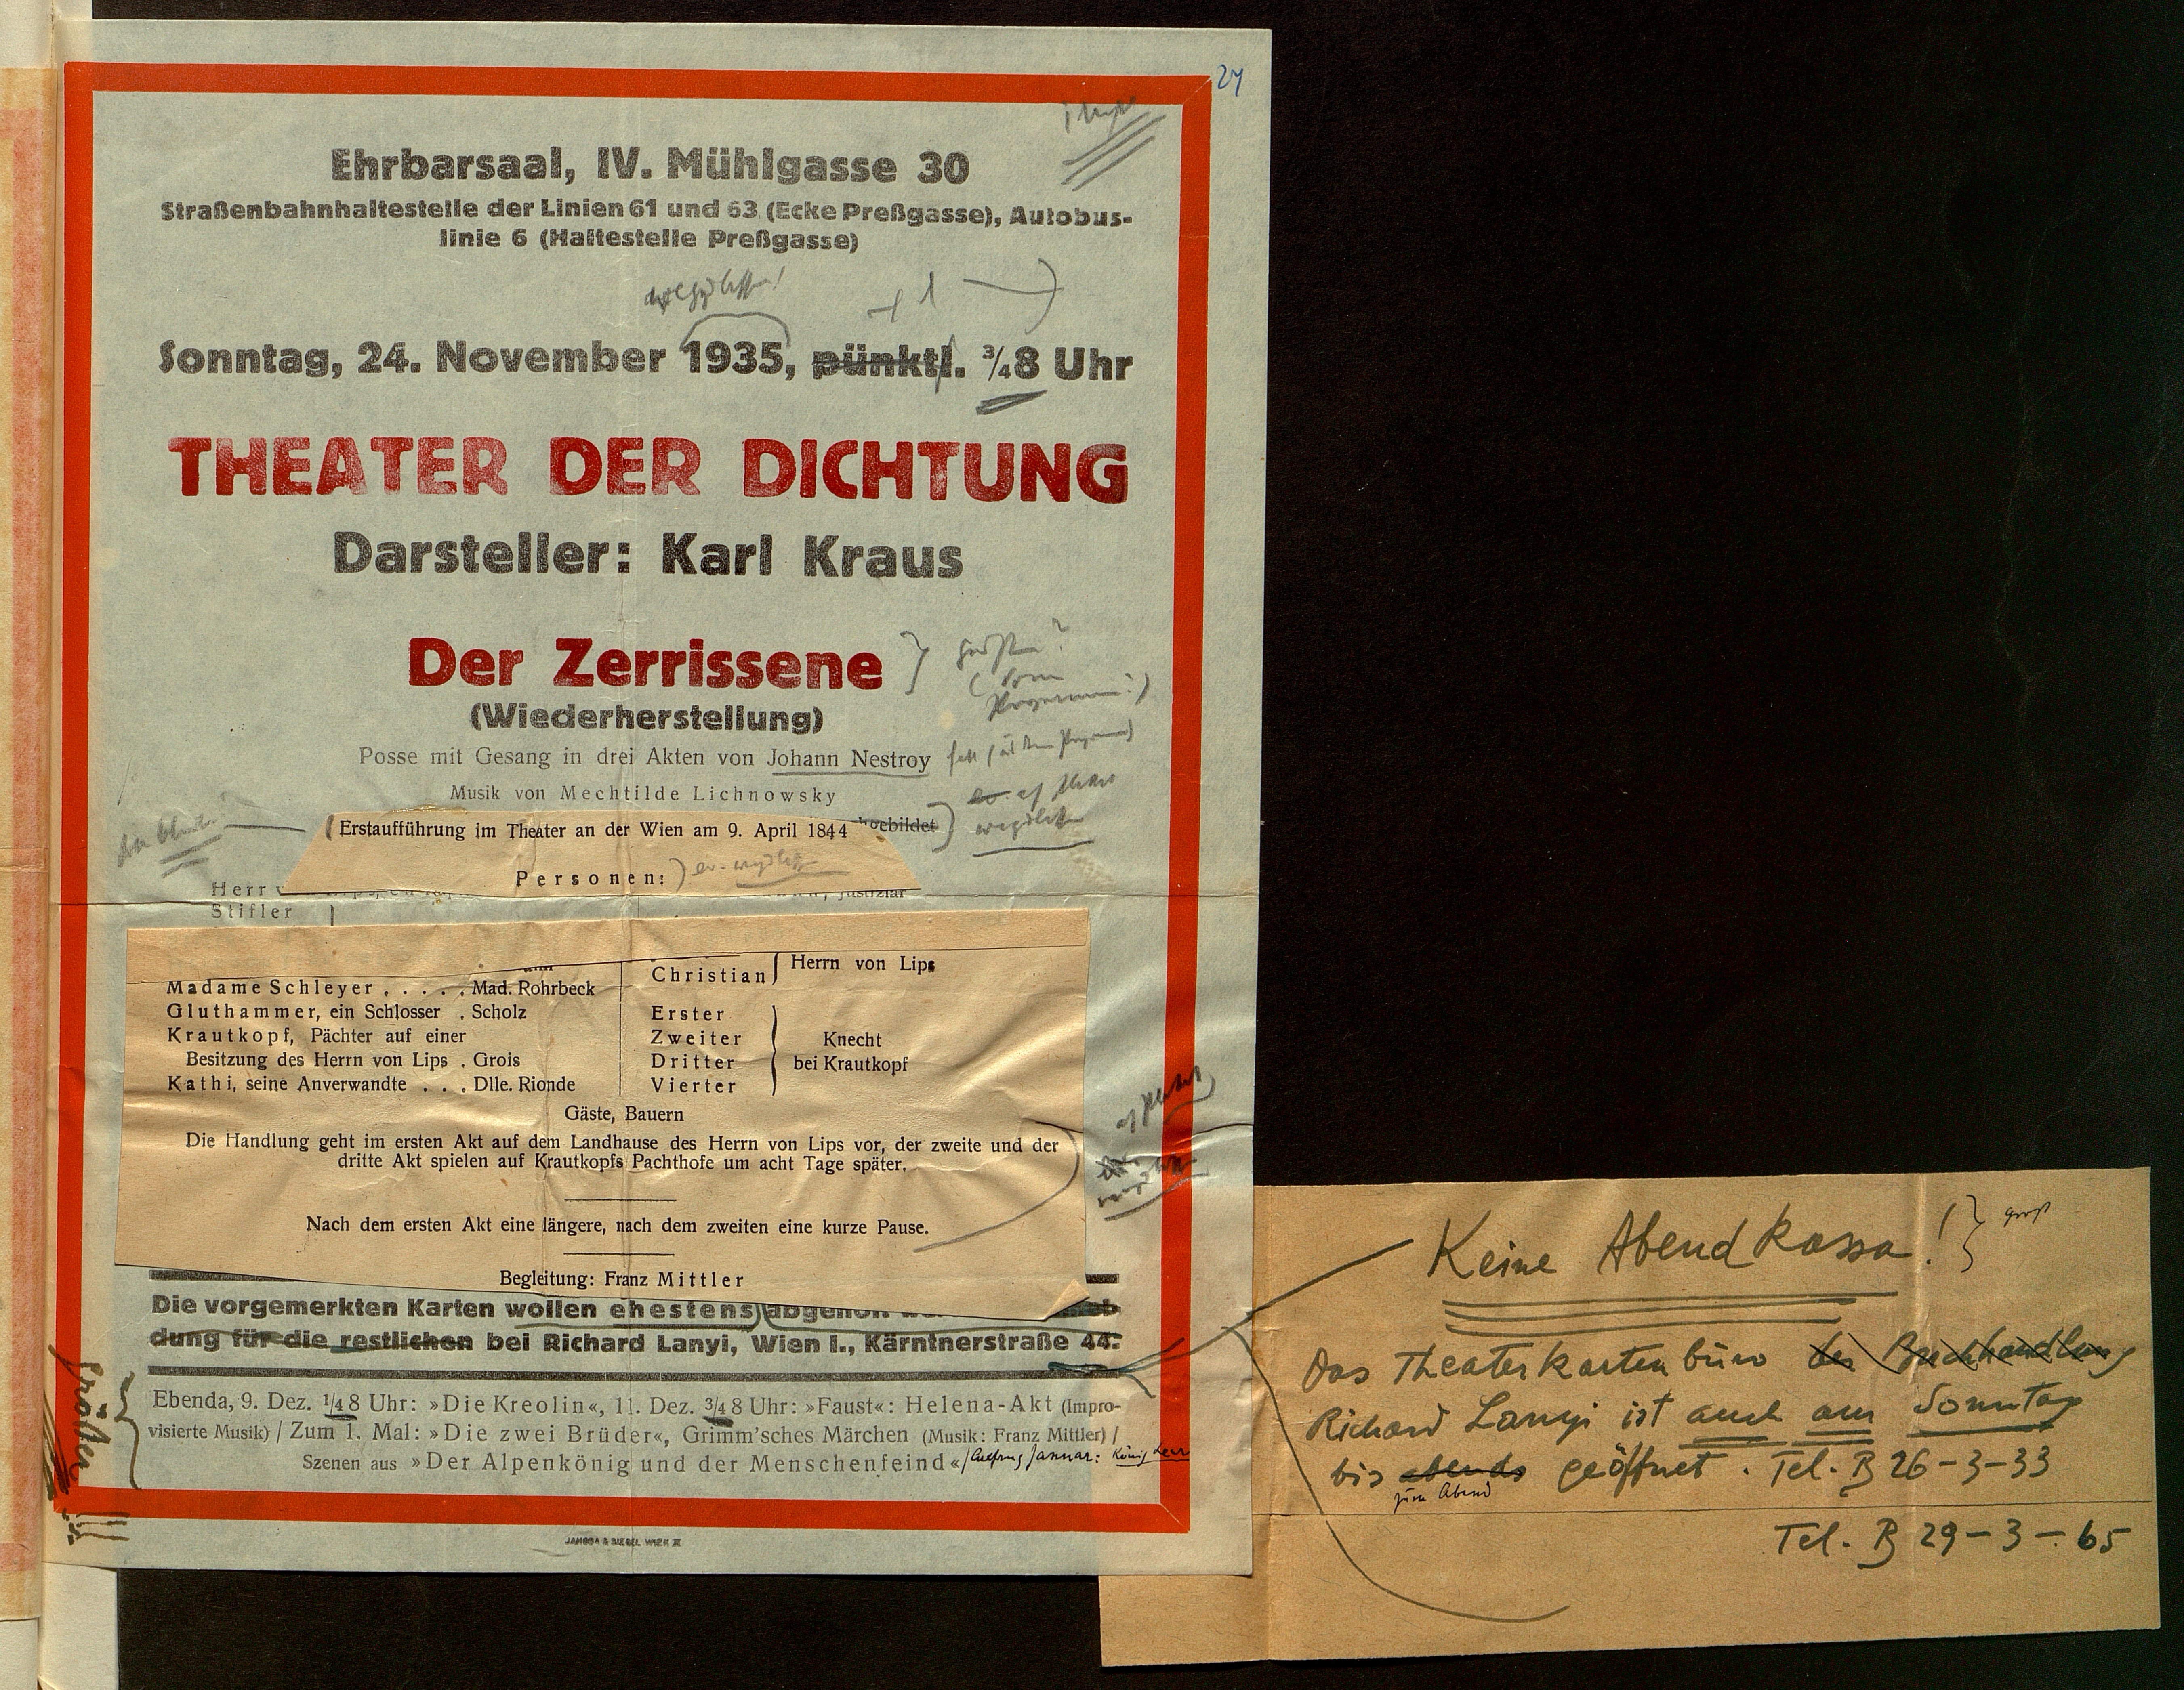 27
Ehrbarsaal, IV. Mühlgasse 30
Straßenbahnhaltestelle der Linien 61 und 63 (Ecke Preßgasse), Autobus-
linie 6 (Haltestelle Preßgasse)
Sonntag, 24. November 1935, pünktl. ¾8 Uhr
THEATER DER DICHTUNG
Darsteller: Karl Kraus
Der Zerrissene
(Wiederherstellung)
Posse mit Gesang in drei Akten von Johann Nestroy
Musik von Mechtilde Lichnowsky
(Erstaufführung im Theater an der Wien am 9. April 1844
Personen:
Herr
Stifler
Christian Herrn von Lips
Madame Schleyer . . . . . Mad. Rohrbeck
Gluthammer, ein Schlosser . Scholz
Krautkopf, Pächter auf einer
Besitzung des Herrn von Lips . Grois
Kathi, seine Anverwandte . . . Dlle. Rionde
Erster
Zweiter
Dritter
Vierter
Knecht
bei Krautkopf
Gäste, Bauern
Die Handlung geht im ersten Akt auf dem Landhause des Herrn von Lips vor, der zweite und der
dritte Akt spielen auf Krautkopfs Pachthofe um acht Tage später.
Nach dem ersten Akt eine längere, nach dem zweiten eine kurze Pause.
Begleitung: Franz Mittler
Die vorgemerkten Karten wollen ehestens
dung für die restlichen bei Richard Lanyi, Wien I., Kärntnerstraße 44.
größer
Ebenda, 9. Dez. ¼8 Uhr: »Die Kreolin«, 11. Dez. ¾8 Uhr: »Faust«: Helena-Akt (Impro-
visierte Musik) / Zum 1. Mal: »Die zwei Brüder«, Grimm'sches Märchen (Musik: Franz Mittler) /
Szenen aus »Der Alpenkönig und der Menschenfeind« / Anfang Januar: König Lear
JAHODA & SIEGEL WIEN III
Keine Abendkassa! } groß
Das Theaterkartenbüro der Buchhandlung
Richard Lanyi ist auch am Sonntag
bis abends geöffnet. Tel. B 26-3-33
zum Abend
Tel. B 29-3-65